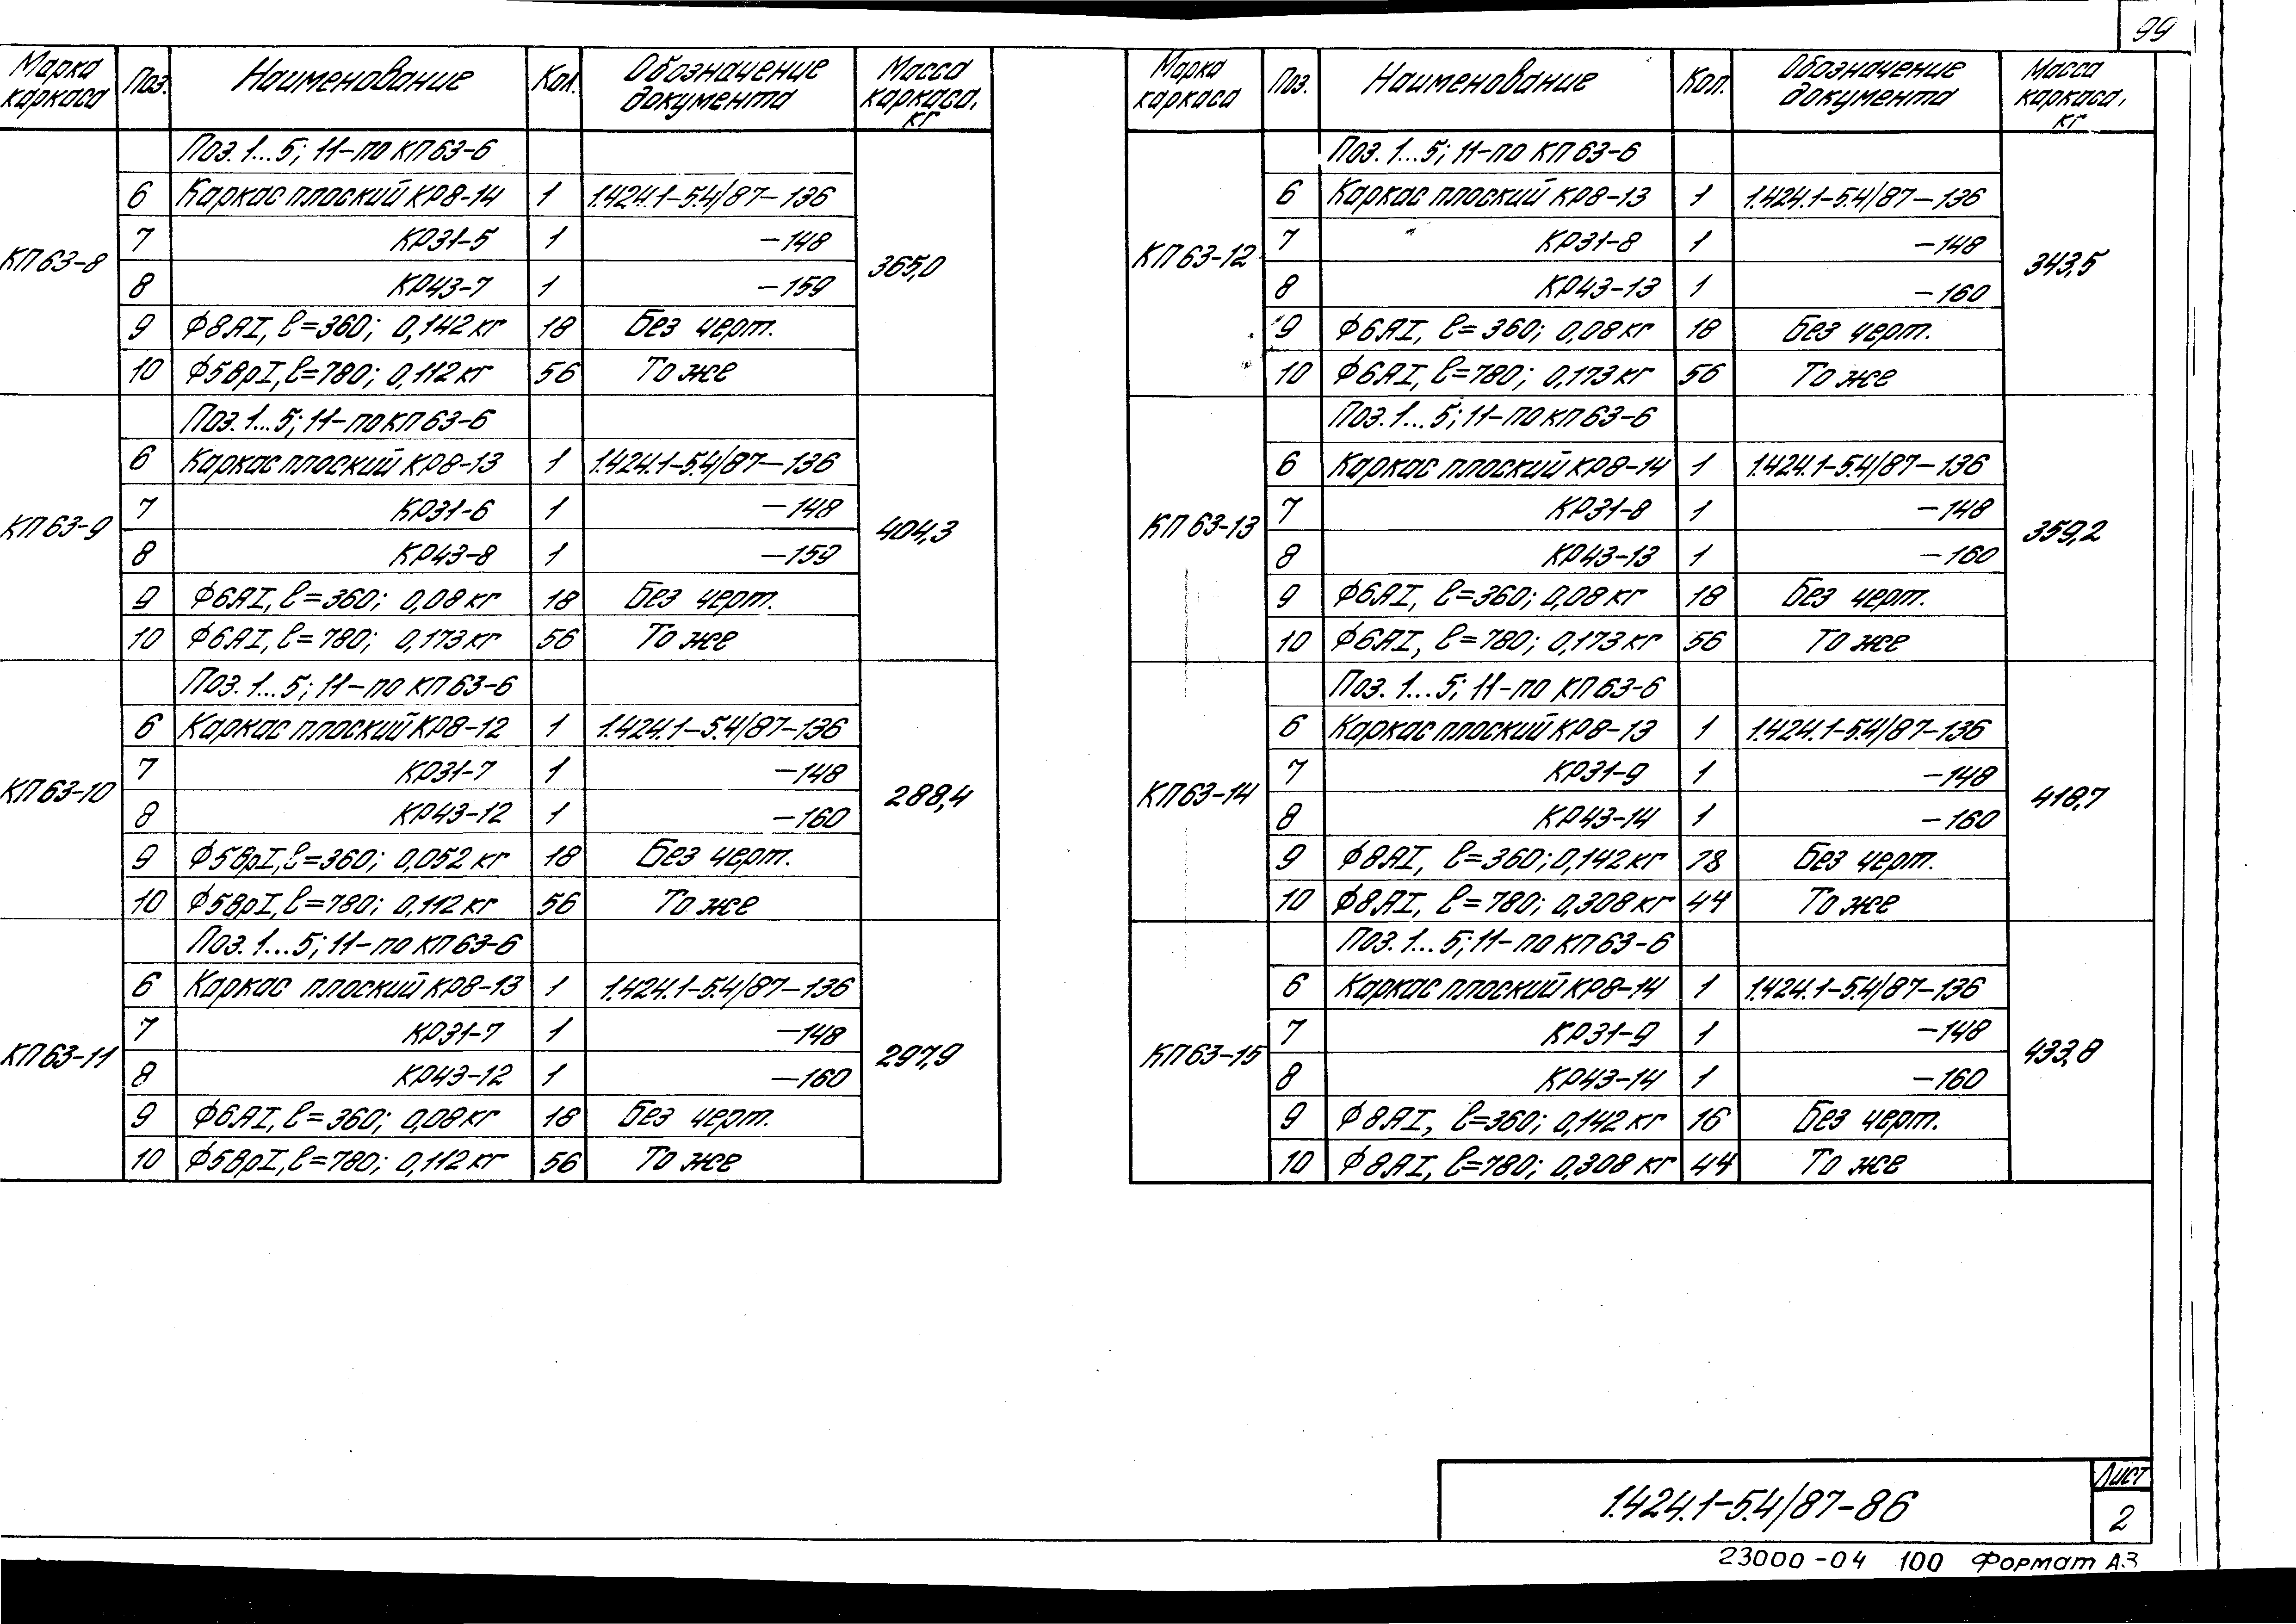 99
Марка каркаса Поз. Наименование Кол. Обозначение документа Масса каркаса, кг
Поз. 1...5; 11-по КП63-6
6 Каркас плоский КР8-14 1 1.424.1-5.4/87-136
7 КР31-5 1 -148
КП63-8 365,0
8 КР43-7 1 -159
9 Ф8АI, ℓ=360; 0,142 кг 18 Без черт.
10 Ф5ВрI, ℓ=780; 0,112 кг 56 То же
Поз. 1...5; 11-по КП63-6
6 Каркас плоский КР8-13 1 1.424.1-5.4/87-136
7 КР31-6 1 -148
КП63-9 404,3
8 КР43-8 1 -159
9 Ф6АI, ℓ=360; 0,08 кг 18 Без черт.
10 Ф6АI, ℓ=780; 0,173 кг 56 То же
Поз. 1...5; 11-по КП63-6
6 Каркас плоский КР8-12 1 1.424.1-5.4/87-136
7 КР31-7 1 -148
КП63-10 288,4
8 КР43-12 1 -160
9 Ф5ВрI, ℓ=360; 0,052 кг 18 Без черт.
10 Ф5ВрI, ℓ=780; 0,112 кг 56 То же
Поз. 1...5; 11-по КП63-6
6 Каркас плоский КР8-13 1 1.424.1-5.4/87-136
7 КР31-7 1 -148
КП63-11 297,9
8 КР43-12 1 -160
9 Ф6АI, ℓ=360; 0,08 кг 18 Без черт.
10 Ф5ВрI, ℓ=780; 0,112 кг 56 То же
Марка каркаса Поз. Наименование Кол. Обозначение документа Масса каркаса, кг
Поз. 1...5; 11-по КП63-6
6 Каркас плоский КР8-13 1 1.424.1-5.4/87-136
7 КР31-8 1 -148
КП63-12 343,5
8 КР43-13 1 -160
9 Ф6АI, ℓ=360; 0,08 кг 18 Без черт.
10 Ф6АI, ℓ=780; 0,173 кг 56 То же
Поз. 1...5; 11-по КП63-6
6 Каркас плоский КР8-14 1 1.424.1-5.4/87-136
7 КР31-8 1 -148
КП63-13 359,2
8 КР43-13 1 -160
9 Ф6АI, ℓ=360; 0,08 кг 18 Без черт.
10 Ф6АI, ℓ=780; 0,173 кг 56 То же
Поз. 1...5; 11-по КП63-6
6 Каркас плоский КР8-13 1 1.424.1-5.4/87-136
7 КР31-9 1 -148
КП63-14 418,7
8 КР43-14 1 -160
9 Ф8АI, ℓ=360; 0,142 кг 18 Без черт.
10 Ф8АI, ℓ=780; 0,308 кг 44 То же
Поз. 1...5; 11-по КП63-6
6 Каркас плоский КР8-14 1 1.424.1-5.4/87-136
7 КР31-9 1 -148
КП63-15 433,8
8 КР43-14 1 -160
9 Ф8АI, ℓ=360; 0,142 кг 16 Без черт.
10 Ф8АI, ℓ=780; 0,308 кг 44 То же
1.424.1-5.4/87-86
Лист
2
23000-04 100 Формат А3